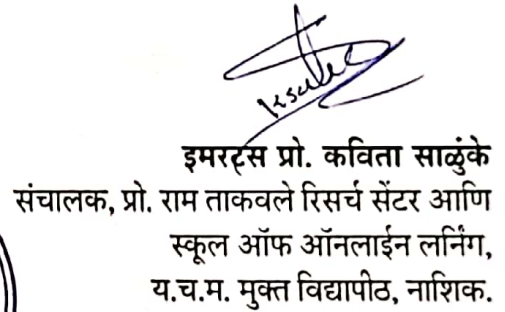 इमरट्स प्रो. कविता साळुंके
संचालक, प्रो. राम ताकवले रिसर्च सेंटर आणि
स्कूल ऑफ ऑनलाईन लर्निंग,
य.च.म. मुक्त विद्यापीठ, नाशिक.